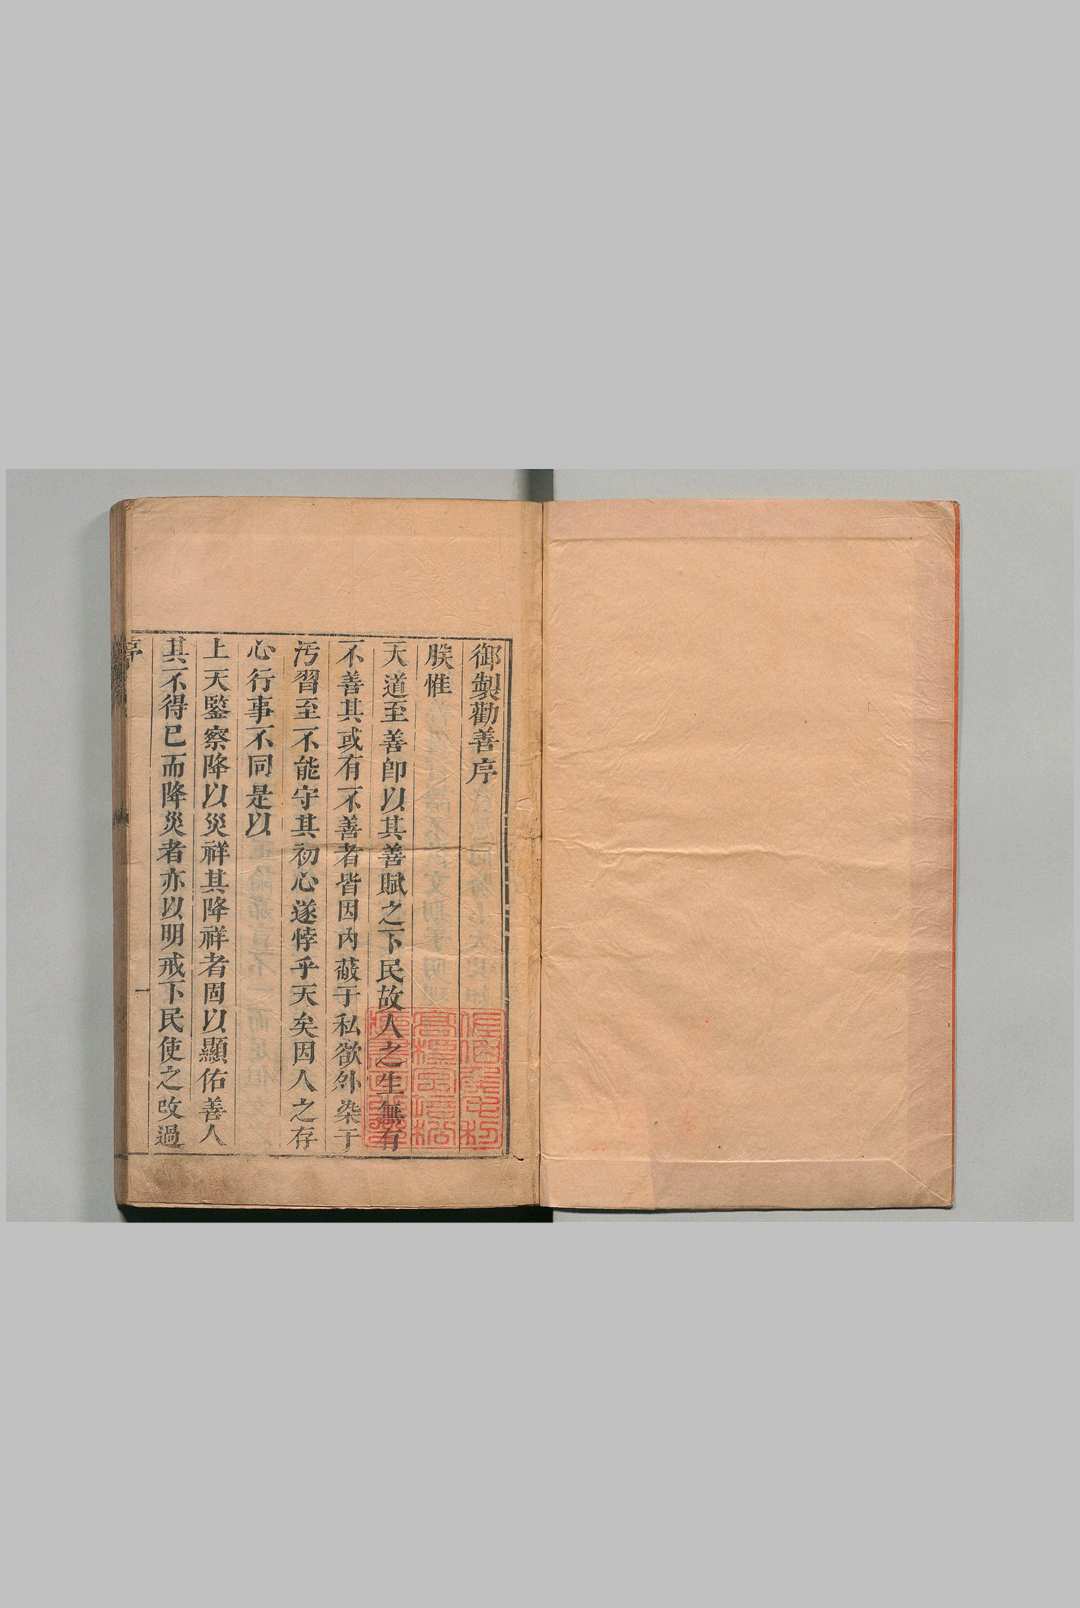 御製勸善序
朕惟
天道至善卽以其善賦之下民故人之生無有
不善其或有不善者皆因內蔽于私欲外染于
汚習至不能守其初心遂悖乎天矣因人之存
心行事不同是以
上天鑒察降以災祥其降祥者固以顯佑善人
其不得已而降災者亦以明戒下民使之改過
序
一